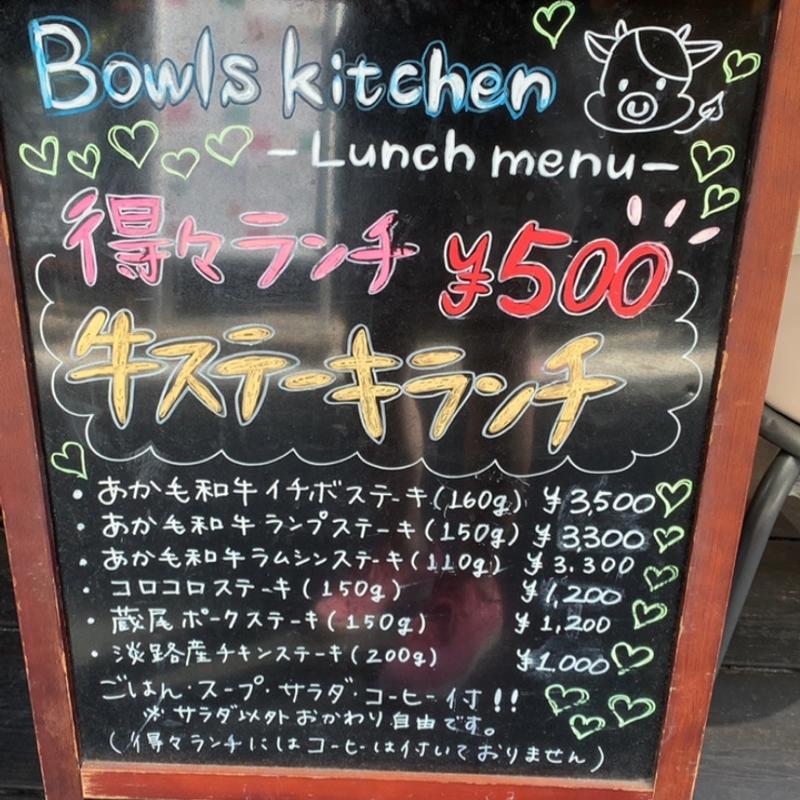 Bowls kitchen
-Lunch menu-
得々ランチ ¥500
牛ステーキランチ
・あか毛和牛イチボステーキ(160g) ¥3,500
・あか毛和牛ランプステーキ(150g) ¥3300
・あか毛和牛ラムシンステーキ(110g) ¥3.300
・コロコロステーキ(150g) ¥1,200
・蔵尾ポークステーキ(150g) ¥1,200
・淡路産チキンステーキ(200g) ¥1.000
ごはん・スープ・サラダ・コーヒー付!!
※サラダ以外おかわり自由です。
(得々ランチにはコーヒーは付いておりません)